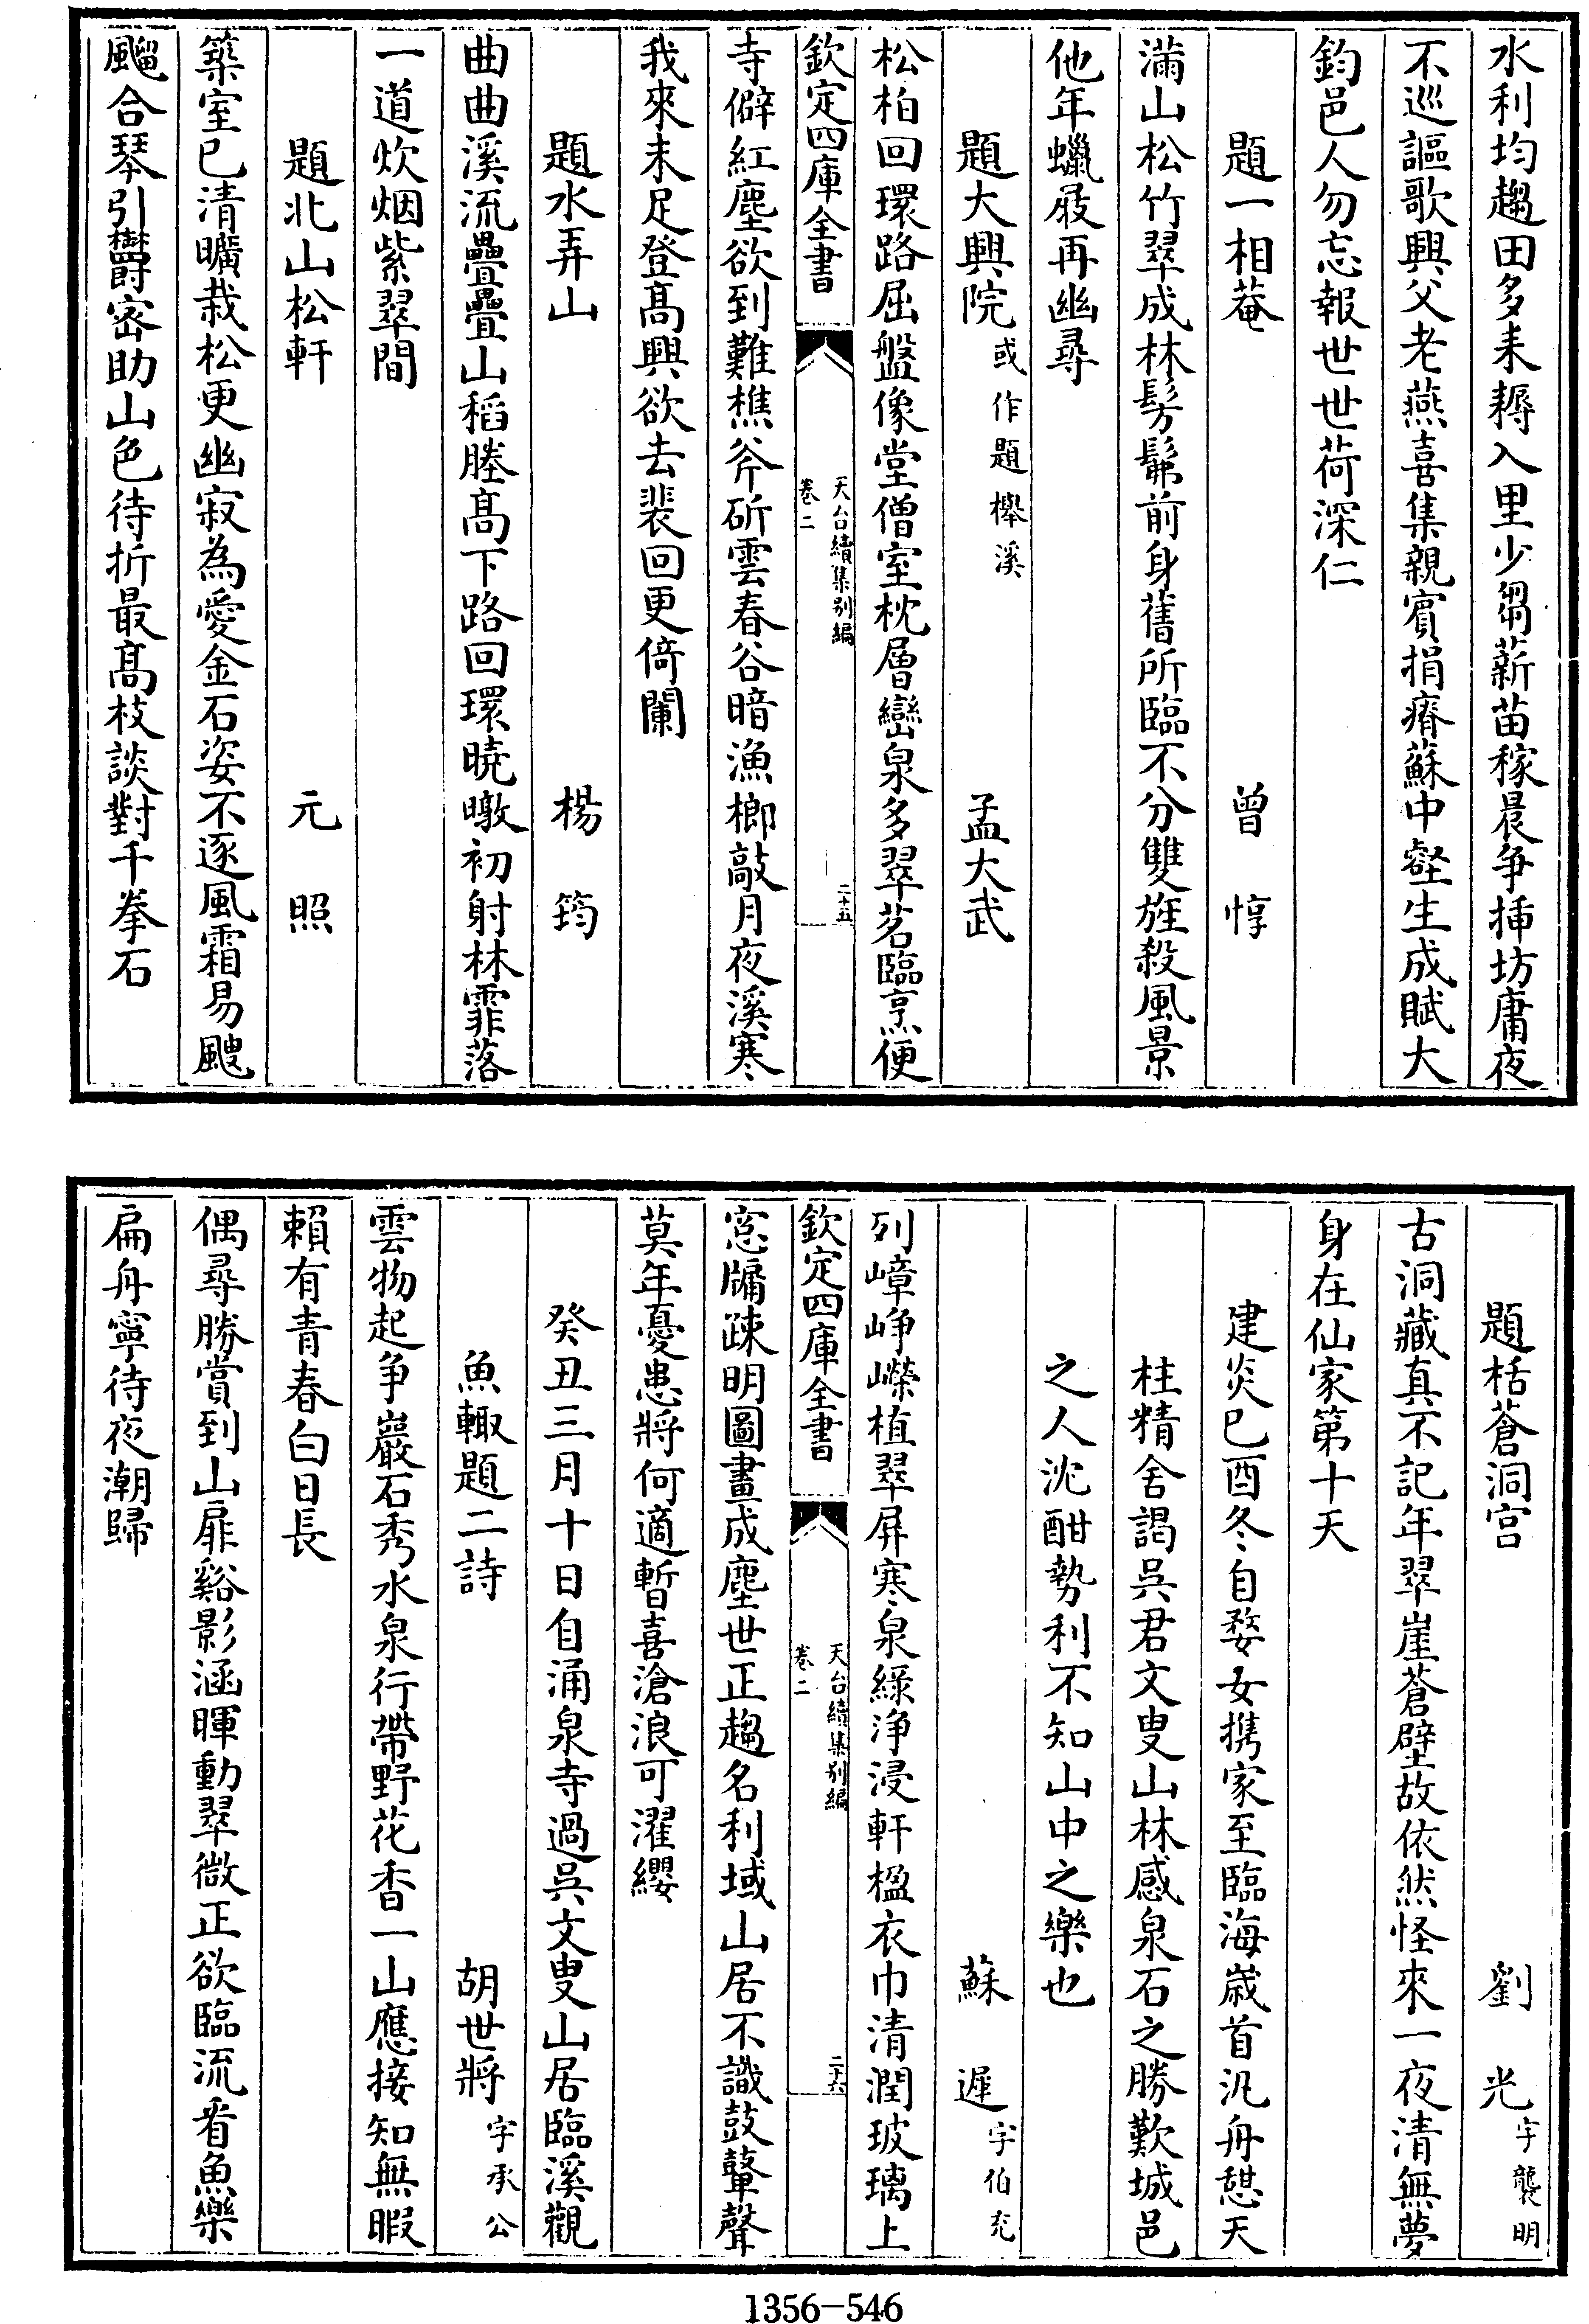 水利均趨田多耒耨入里少芻薪苗稼晨争挿坊庸夜
不巡謳歌興父老燕喜集親賓捐瘠蘇中壑生成賦大
鈞邑人勿忘報世世荷深仁
題一相菴 曾惇
滿山松竹翠成林髣髴前身舊所臨不分雙旌殺風景
他年蠟屐再幽尋
題大興院或作題櫸溪 孟大武
松柏回環路屈盤像堂僧室枕層巒泉多翠茗臨烹便
欽定四庫全書
天台續集别編
卷二
二十五
寺僻紅塵欲到難樵斧斫雲春谷暗漁榔敲月夜溪寒
我來未足登髙興欲去裴回更倚闌
題水弄山 楊筠
曲曲溪流疊疊山稻塍髙下路回環曉暾初射林霏落
一道炊烟紫翠間
題北山松軒 元照
築室已清曠栽松更幽寂為愛金石姿不逐風霜易颼
飀合琴引欝密助山色待折最髙枝談對千拳石
題括蒼洞宫 劉光字襲明
古洞藏真不記年翠崖蒼壁故依然怪來一夜清無夢
身在仙家第十天
建炎己酉冬自婺女携家至臨海歲首汎舟憇天
柱精舍謁吳君文叟山林感泉石之勝歎城邑
之人沈酣勢利不知山中之樂也
蘇遲字伯充
列嶂峥嶸植翠屏寒泉緑浄浸軒楹衣巾清潤玻璃上
欽定四庫全書
天台續集别編
卷二
二十六
窓牖疎明圖畫成塵世正趨名利域山居不識鼓鼙聲
莫年憂患將何適暫喜滄浪可濯纓
癸丑三月十日自涌泉寺過吳文叟山居臨溪觀
魚輙題二詩 胡世將字承公
雲物起争巖石秀水泉行帶野花香一山應接知無暇
賴有青春白日長
偶尋勝賞到山扉谿影涵暉動翠微正欲臨流看魚樂
扁舟寧待夜潮歸
1356-546